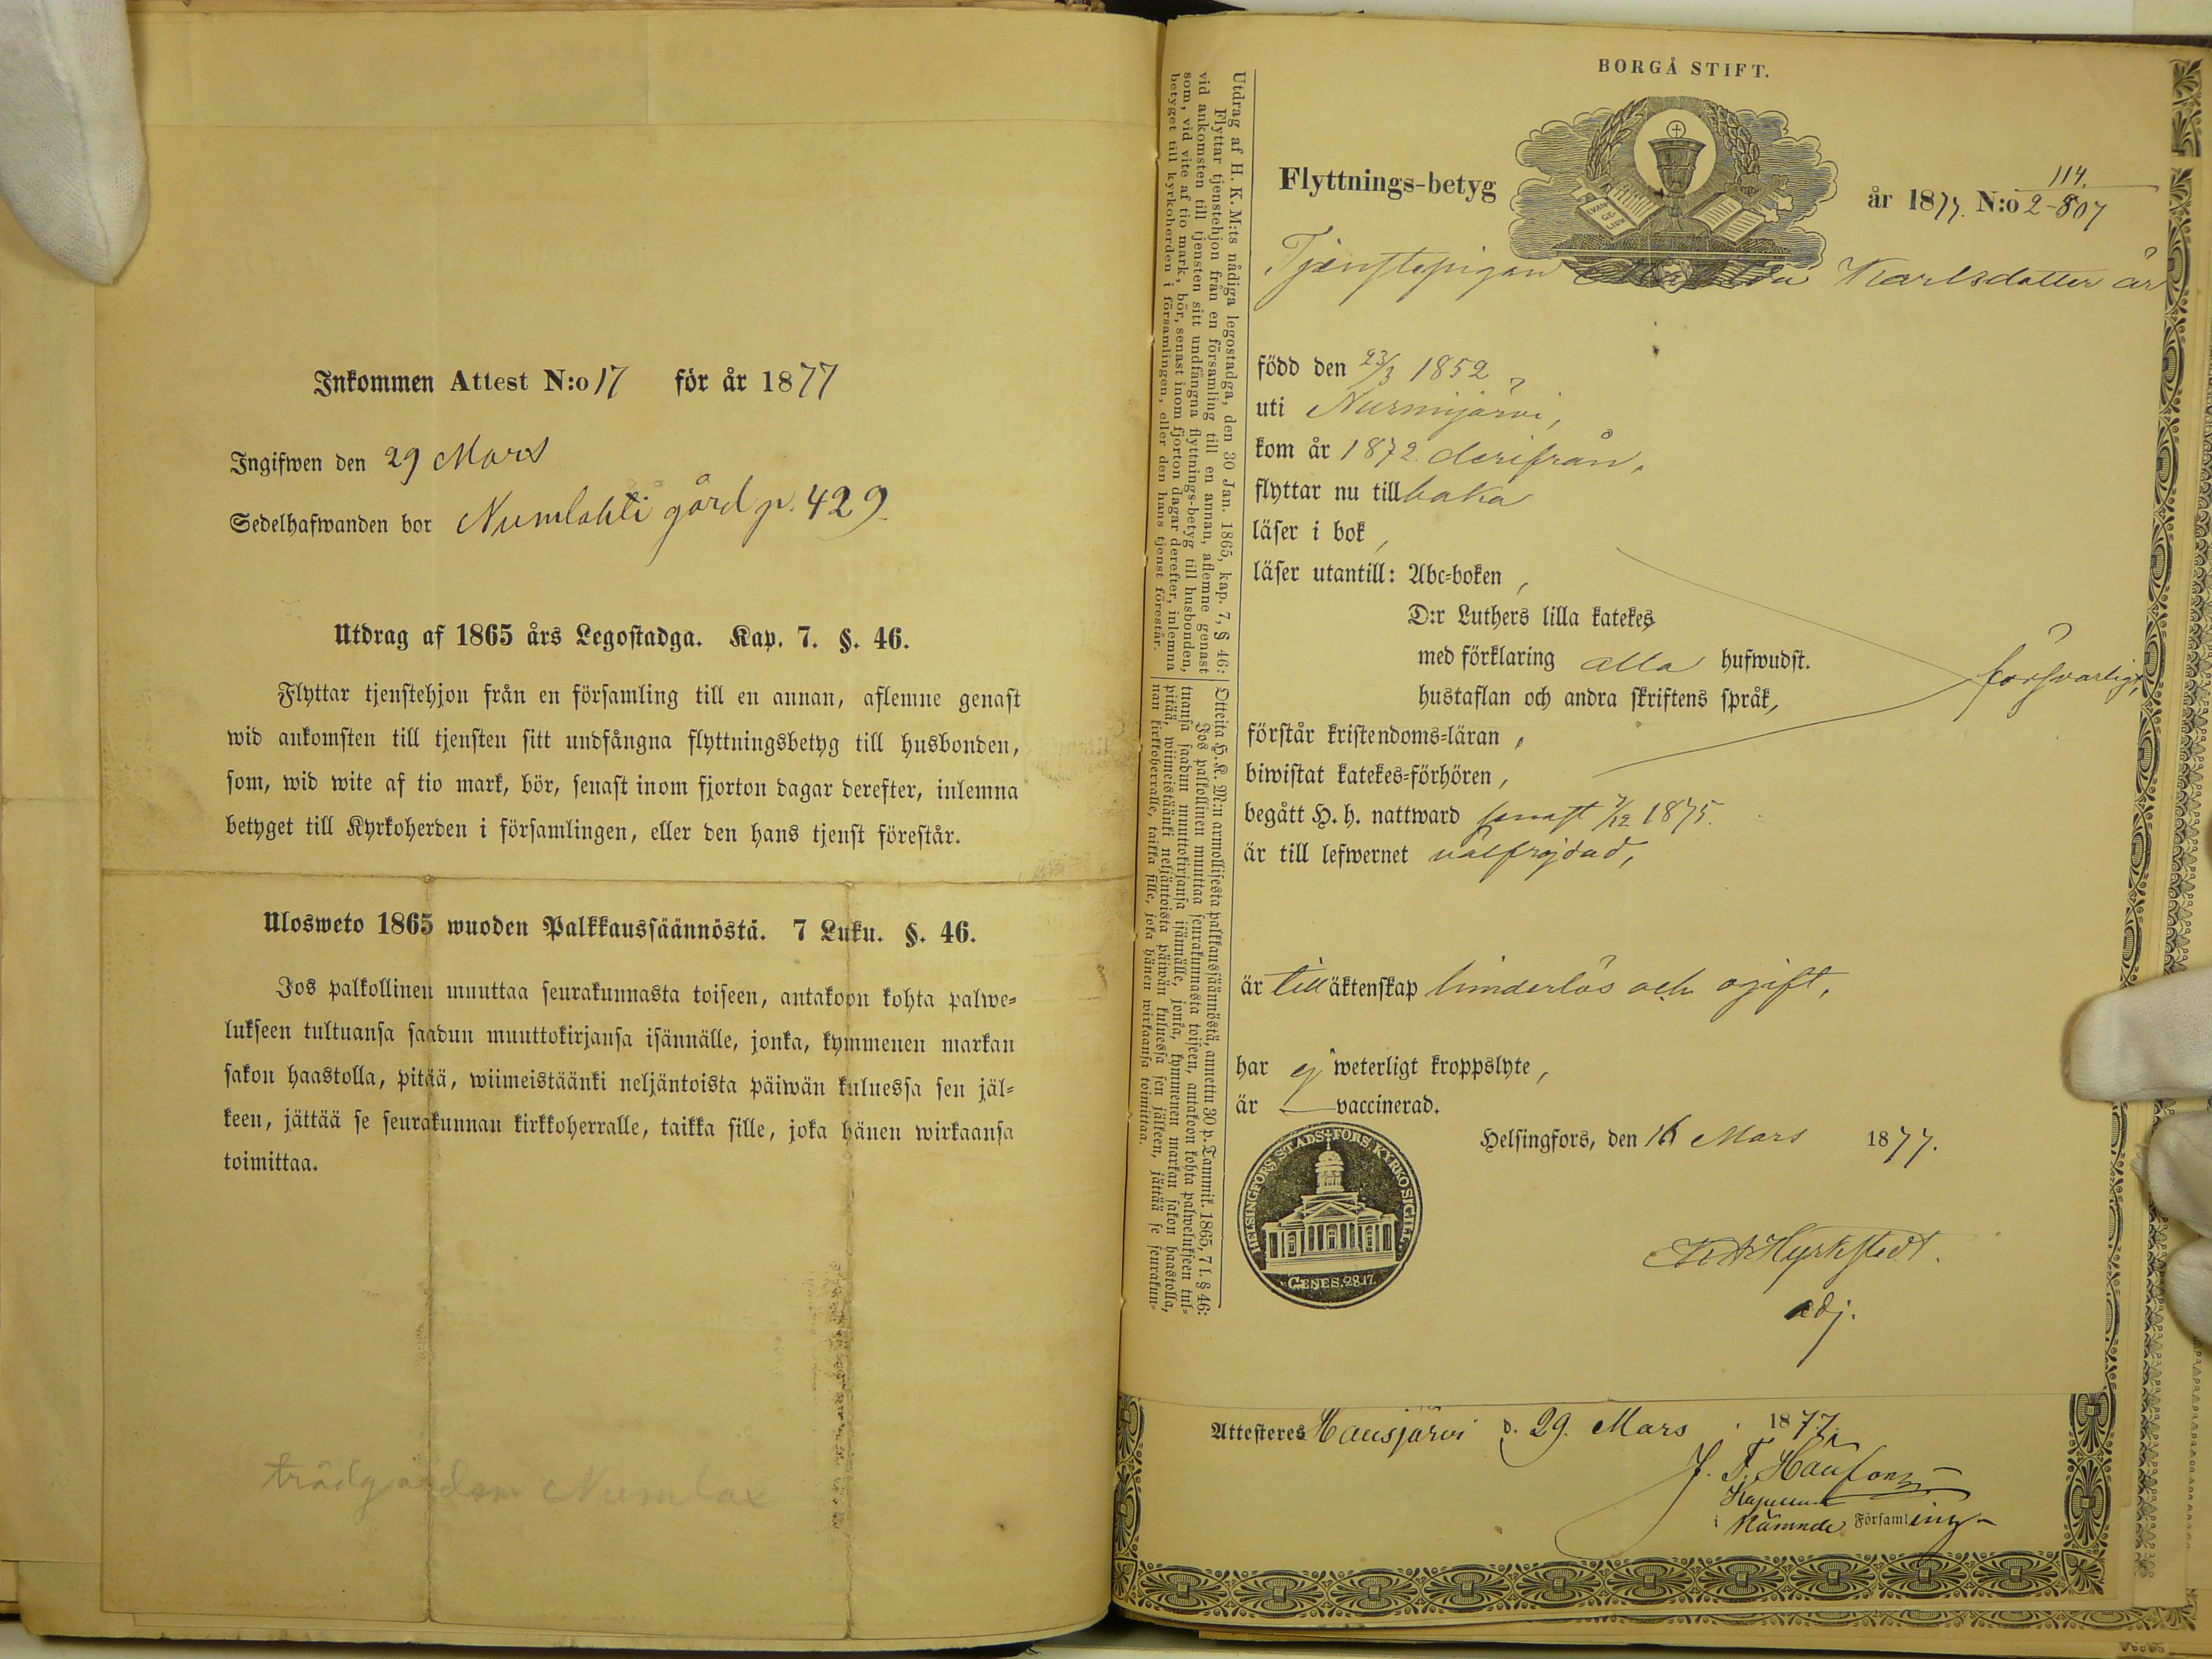 Inkommen Attest N:o 17 för år 1877
Ingifwen den 29 Mars
Sedelhafwanden bor Numlahti gård p. 429
Utdrag af 1865 års Legostadga. Kap. 7. §. 46.
Flyttar tjenstehjon från en församling till en annan, aflemne genast
wid ankomsten till tjensten sitt undfångna flyttningsbetyg till husbonden,
som, wid wite af tio mark, bör, senast inom fjorton dagar derefter, inlemna
betyget till Kyrkoherden i församlingen, eller den hans tjenst förestår.
Ulosweto 1865 wuoden Palkkaussäännöstä. 7 Luku. §. 46.
Jos palkollinen muuttaa seurakunnasta toiseen, antakoon kohta palwe=
lukseen tultuansa saadun muuttokirjansa isännälle, jonka, kymmenen markan
sakon haastolla, pitää, wiimeistäänki neljäntoista päiwän kuluessa sen jäl=
keen, jättää se seurakunnan kirkkoherralle, taikka sille, joka hänen wirkaansa
toimittaa.
trädgårdsm Numlax
Utdrag af H. K. M:ts nådiga legostadga, den 30 Jan. 1865, kap. 7, § 46:
Flyttar tjenstehjon från en församling till en annan, aflemne genast
vid ankomsten till tjensten sitt undfångna flyttnings-betyg till husbonden,
som, vid vite af tio mark, bör, senast inom fjorton dagar derefter, inlemna
betyget till kyrkoherden i församlingen, eller den hans tjenst förestår.
Otteita H. K. M:n armollisesta palkkaussäännöstä, annettu 30 p. Tammik. 1865, 7 l. § 46:
Jos palkollinen muuttaa seurakunnasta toiseen, antakoon kohta palwelukseen tul=
tuansa saadun muuttokirjansa isännälle, jonka, kymmenen markan sakon haastolla,
pitää, wiimeistäänki neljäntoista päiwän kuluessa sen jälkeen, jättää se seurakun=
nan kirkkoherralle, taikka sille, joka hänen wirkaansa toimittaa.
BORGÅ STIFT.
EVAN
GE-
LIUM
Flyttnings-betyg
år 1877. N:o 2-807
114.
Tjenstepigan Karlsdotter är
född den 23/3 1852
uti Nurmijärvi,
kom år 1872 derifrån,
flyttar nu tillbaka
läser i bok,
läser utantill: Abc=boken,
D:r Luthers lilla katekes
med förklaring alla hufwudst.
hustaflan och andra skriftens språk,
försvarligt,
förstår kristendoms=läran,
biwistat katekes=förhören,
begått H. h. nattward senast 7/12 1875.
är till lefwernet välfrejdad,
är till äktenskap hinderlös och ogift,
har ej weterligt kroppslyte,
är — vaccinerad.
Helsingfors, den 16 Mars 1877.
HELSINGFORS STADS-FÖRS. KYRKO SIGILL.
GENES. 28.17.
Hyrkstedt.
adj.
Attesteres Hausjärvi d. 29. Mars 1877,
J. F.
i Nämnde Församling